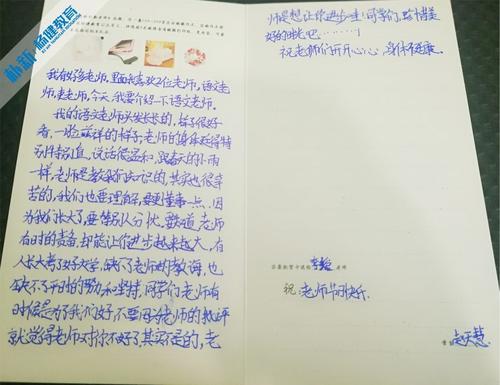 朴新·杨健教育
我有好多老师,里面我喜欢2位老师,语文老
师,史老师,今天,我要介绍一下语文老师。
我的语文老师头发长长的,样子很好
看,一脸慈祥的样子,老师的身体站得特
别特别直,说话很温和,跟春天的小雨
一样,老师是教我们知识的,其实也很辛
苦的,我们也要理解,要更懂事一点,因
为我们长大了,要替别人分忧。要知道,老师
有时的责备,却能让你进步越来越大,有
人长大考了好大学,缺不了老师的教诲,也
缺不了平时的努力和坚持,同学们,老师有
时候是为了我们好,不要因为老师的批评
就觉得老师对你不好了,其实不是的,老
师是想让你进步,同学们,珍惜美
好的时光吧………
祝老师们开开心心,身体健康。
老师
祝 老师节日快乐
赵天慧